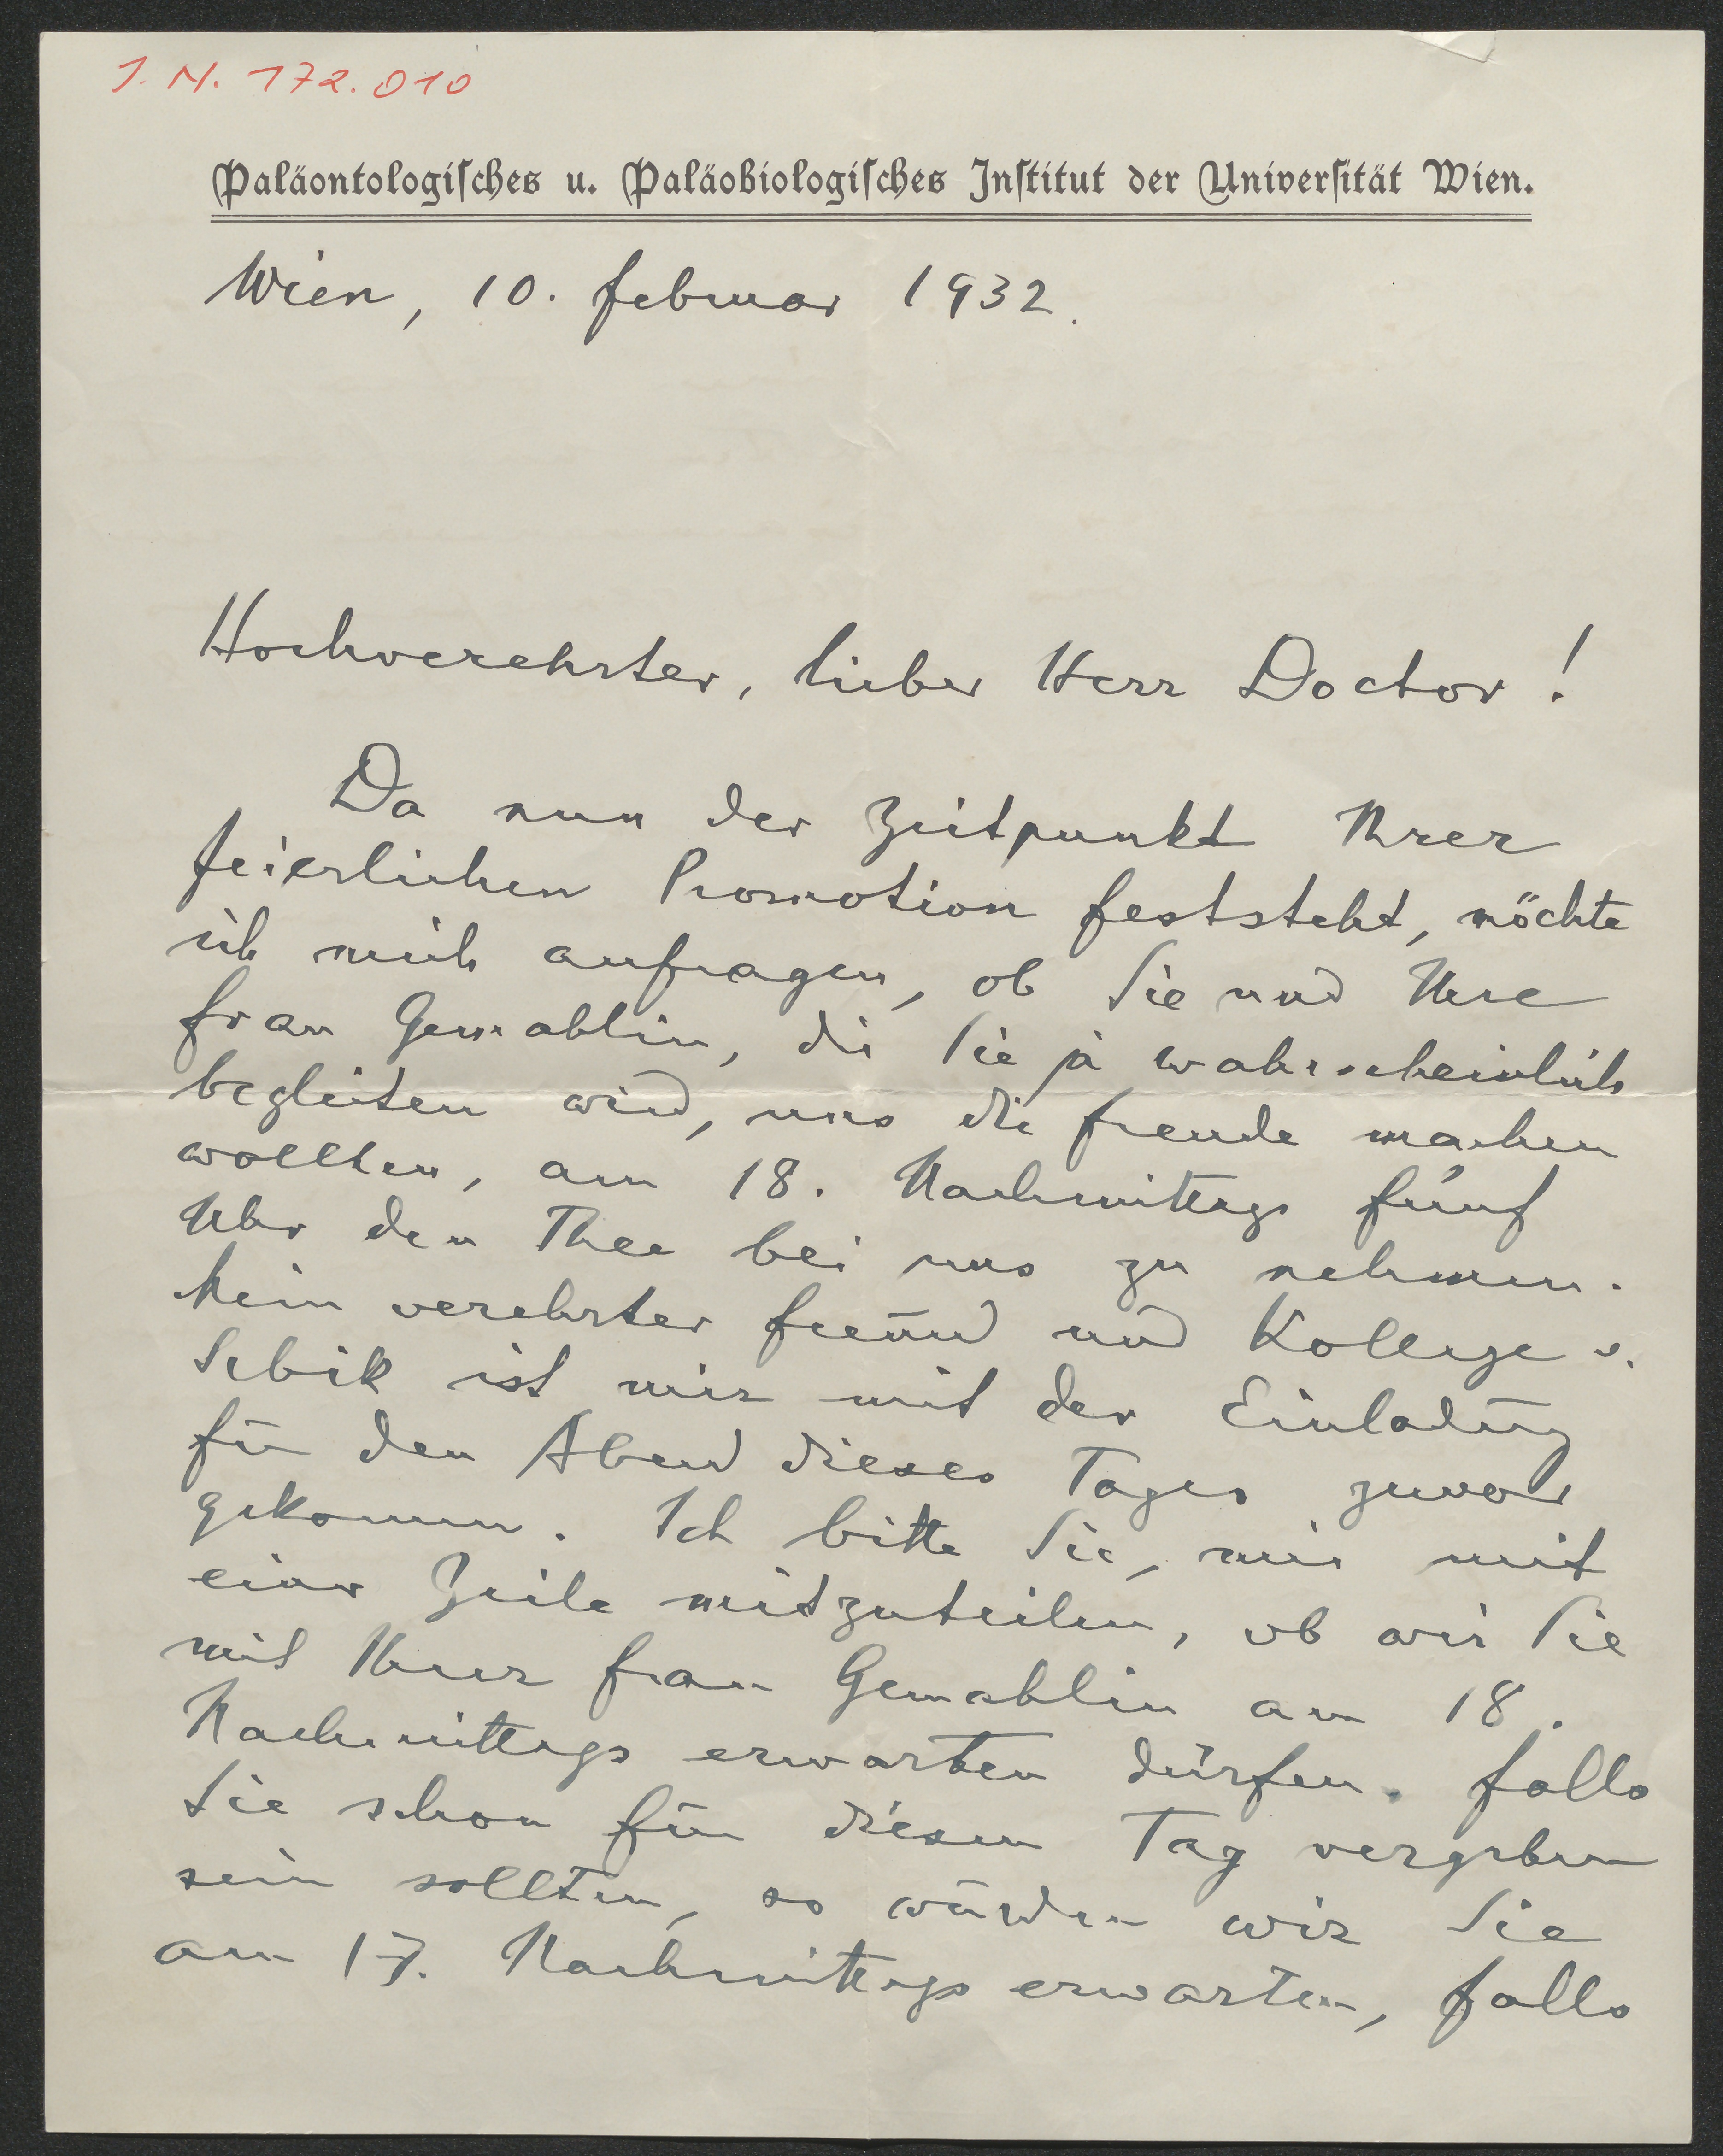 J. N. 172.010
Paläontologisches u. Paläobiologisches Institut der Universität Wien.
Wien, 10. Februar 1932.
Hochverehrter, lieber Herr Doctor!
Da nun der Zeitpunkt Ihrer
feierlichen Promotion feststeht, möchte
ich mich anfragen, ob Sie und Ihre
Frau Gemahlin, die Sie ja wahrscheinlich
begleiten wird, uns die Freude machen
wollten, am 18. Nachmittags fünf
Uhr den Thee bei uns zu nehmen.
Mein verehrter Freund und Kollege v.
Srbik ist mir mit der Einladung
für den Abend dieses Tages zuvor
gekommen. Ich bitte Sie, mir mit
einer Zeile mitzuteilen, ob wir Sie
mit Ihrer Frau Gemahlin am 18.
Nachmittags erwarten dürfen. Falls
Sie schon für diesen Tag vergeben
sein sollten, so würden wir Sie
am 17. Nachmittags erwarten, falls